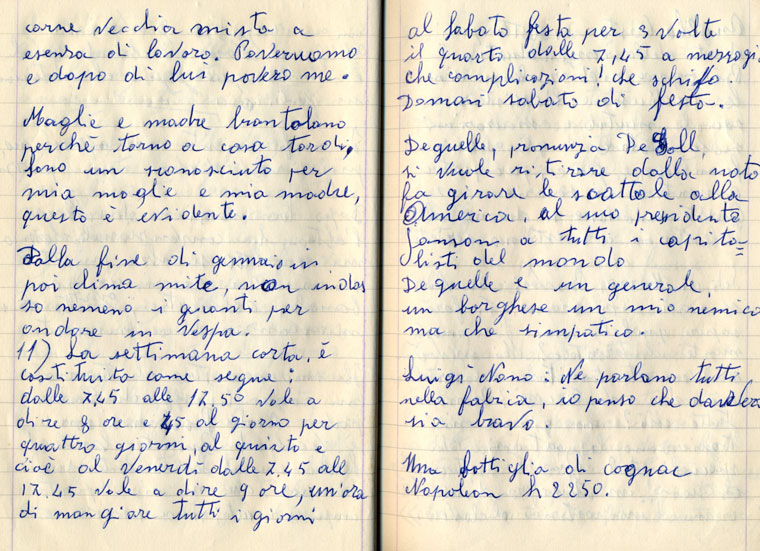 carne vecchia mista a
esenza di lavoro. Poveruomo
e dopo di lui povero me.
Moglie e madre brontolano
perchè torno a casa tardi,
sono un sconosciuto per
mia moglie e mia madre,
questo è evidente.
Dalla fine di gennaio in
poi clima mite, non indos
so nemeno i guanti per
andare in Vespa.
11) La settimana corta, è
costituita come segue:
dalle 7,45 alle 17,50 vale a
dire 8 ore e 45 al giorno per
quattro giorni, al quinto e
cioè al Venerdì dalle 7,45 alle
17,45 vale a dire 9 ore, un'ora
di mangiare tutti i giorni
al sabato festa per 3 volte
il quarto dalle 7,45 a mezzogi
che complicazioni! che schifo.
Domani sabato di festa.
Dequelle, pronunzia De Goll,
si vuole ritirare dalla nato
fa girare le scattole alla
America, al suo presidente
Janson a tutti i capita=
listi del mondo
Dequelle e un generale,
un borghese un mio nemico
ma che simpatico.
Luigi Nono: Ne parlano tutti
nella fabrica, io penso che davvero
sia bravo.
Una bottiglia di cognac
Napoleon £ 2250.